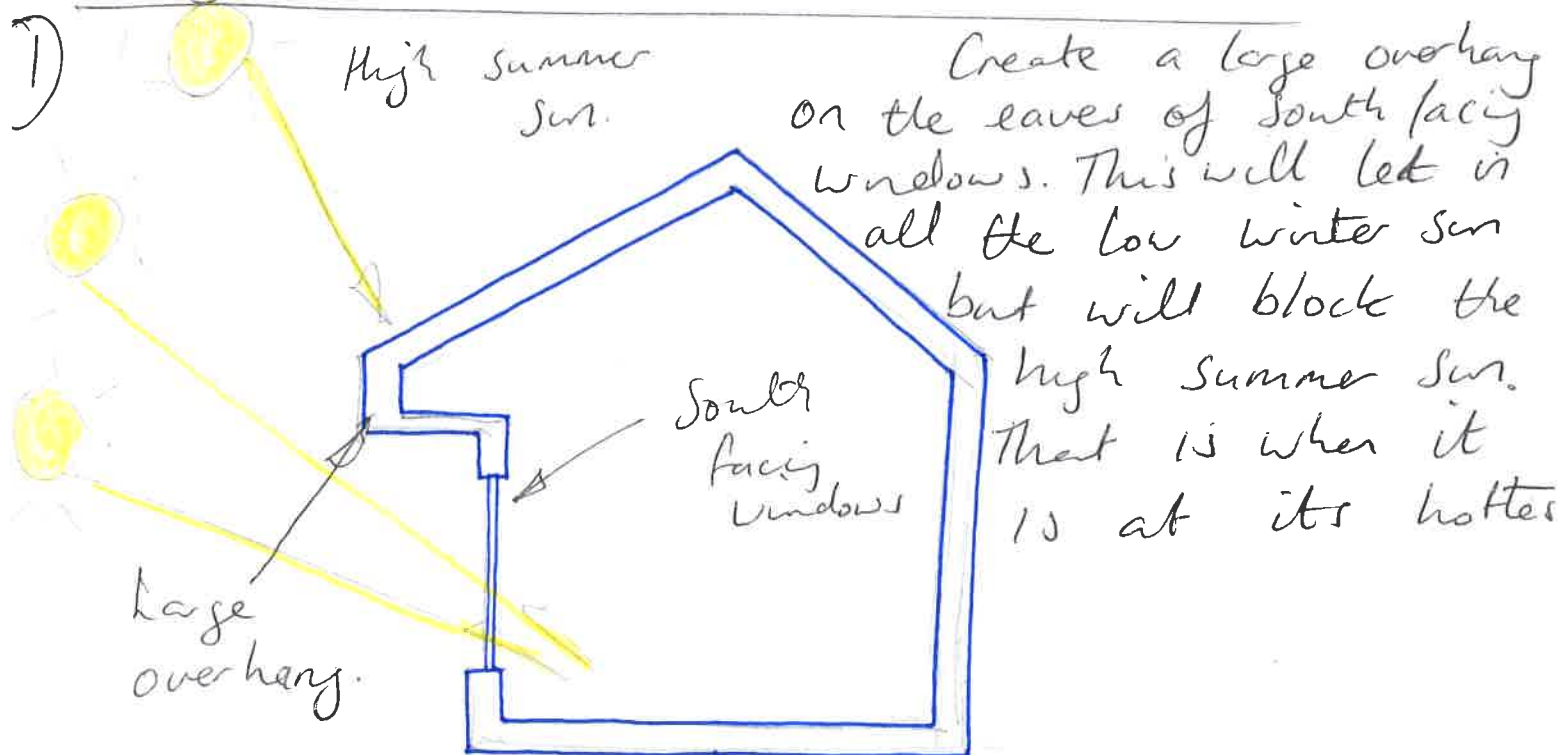 1)
High summer
sun.
Create a large overhang
on the eaves of south facing
windows. This will let in
all the low winter sun
but will block the
high summer sun.
That is when it
is at its hottes
South
facing
windows
Large
overhang.